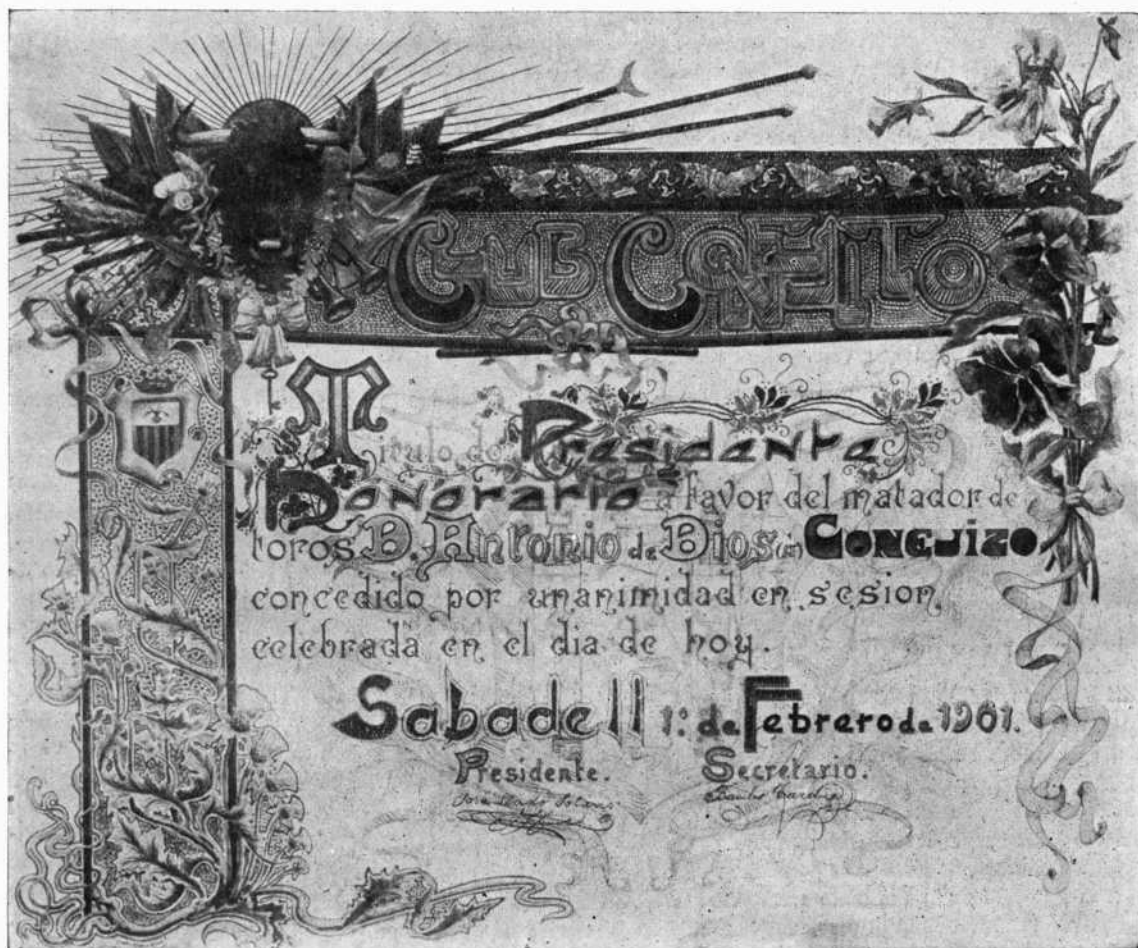 CLUB CONEJITO
Titulo de Presidente
Honorario a favor del matador de
toros D. Antonio de Dios (a) CONEJIZO,
concedido por unanimidad en sesion
celebrada en el dia de hoy.
Sabadell 1: de Febrero de 1901.
Presidente. Secretario.